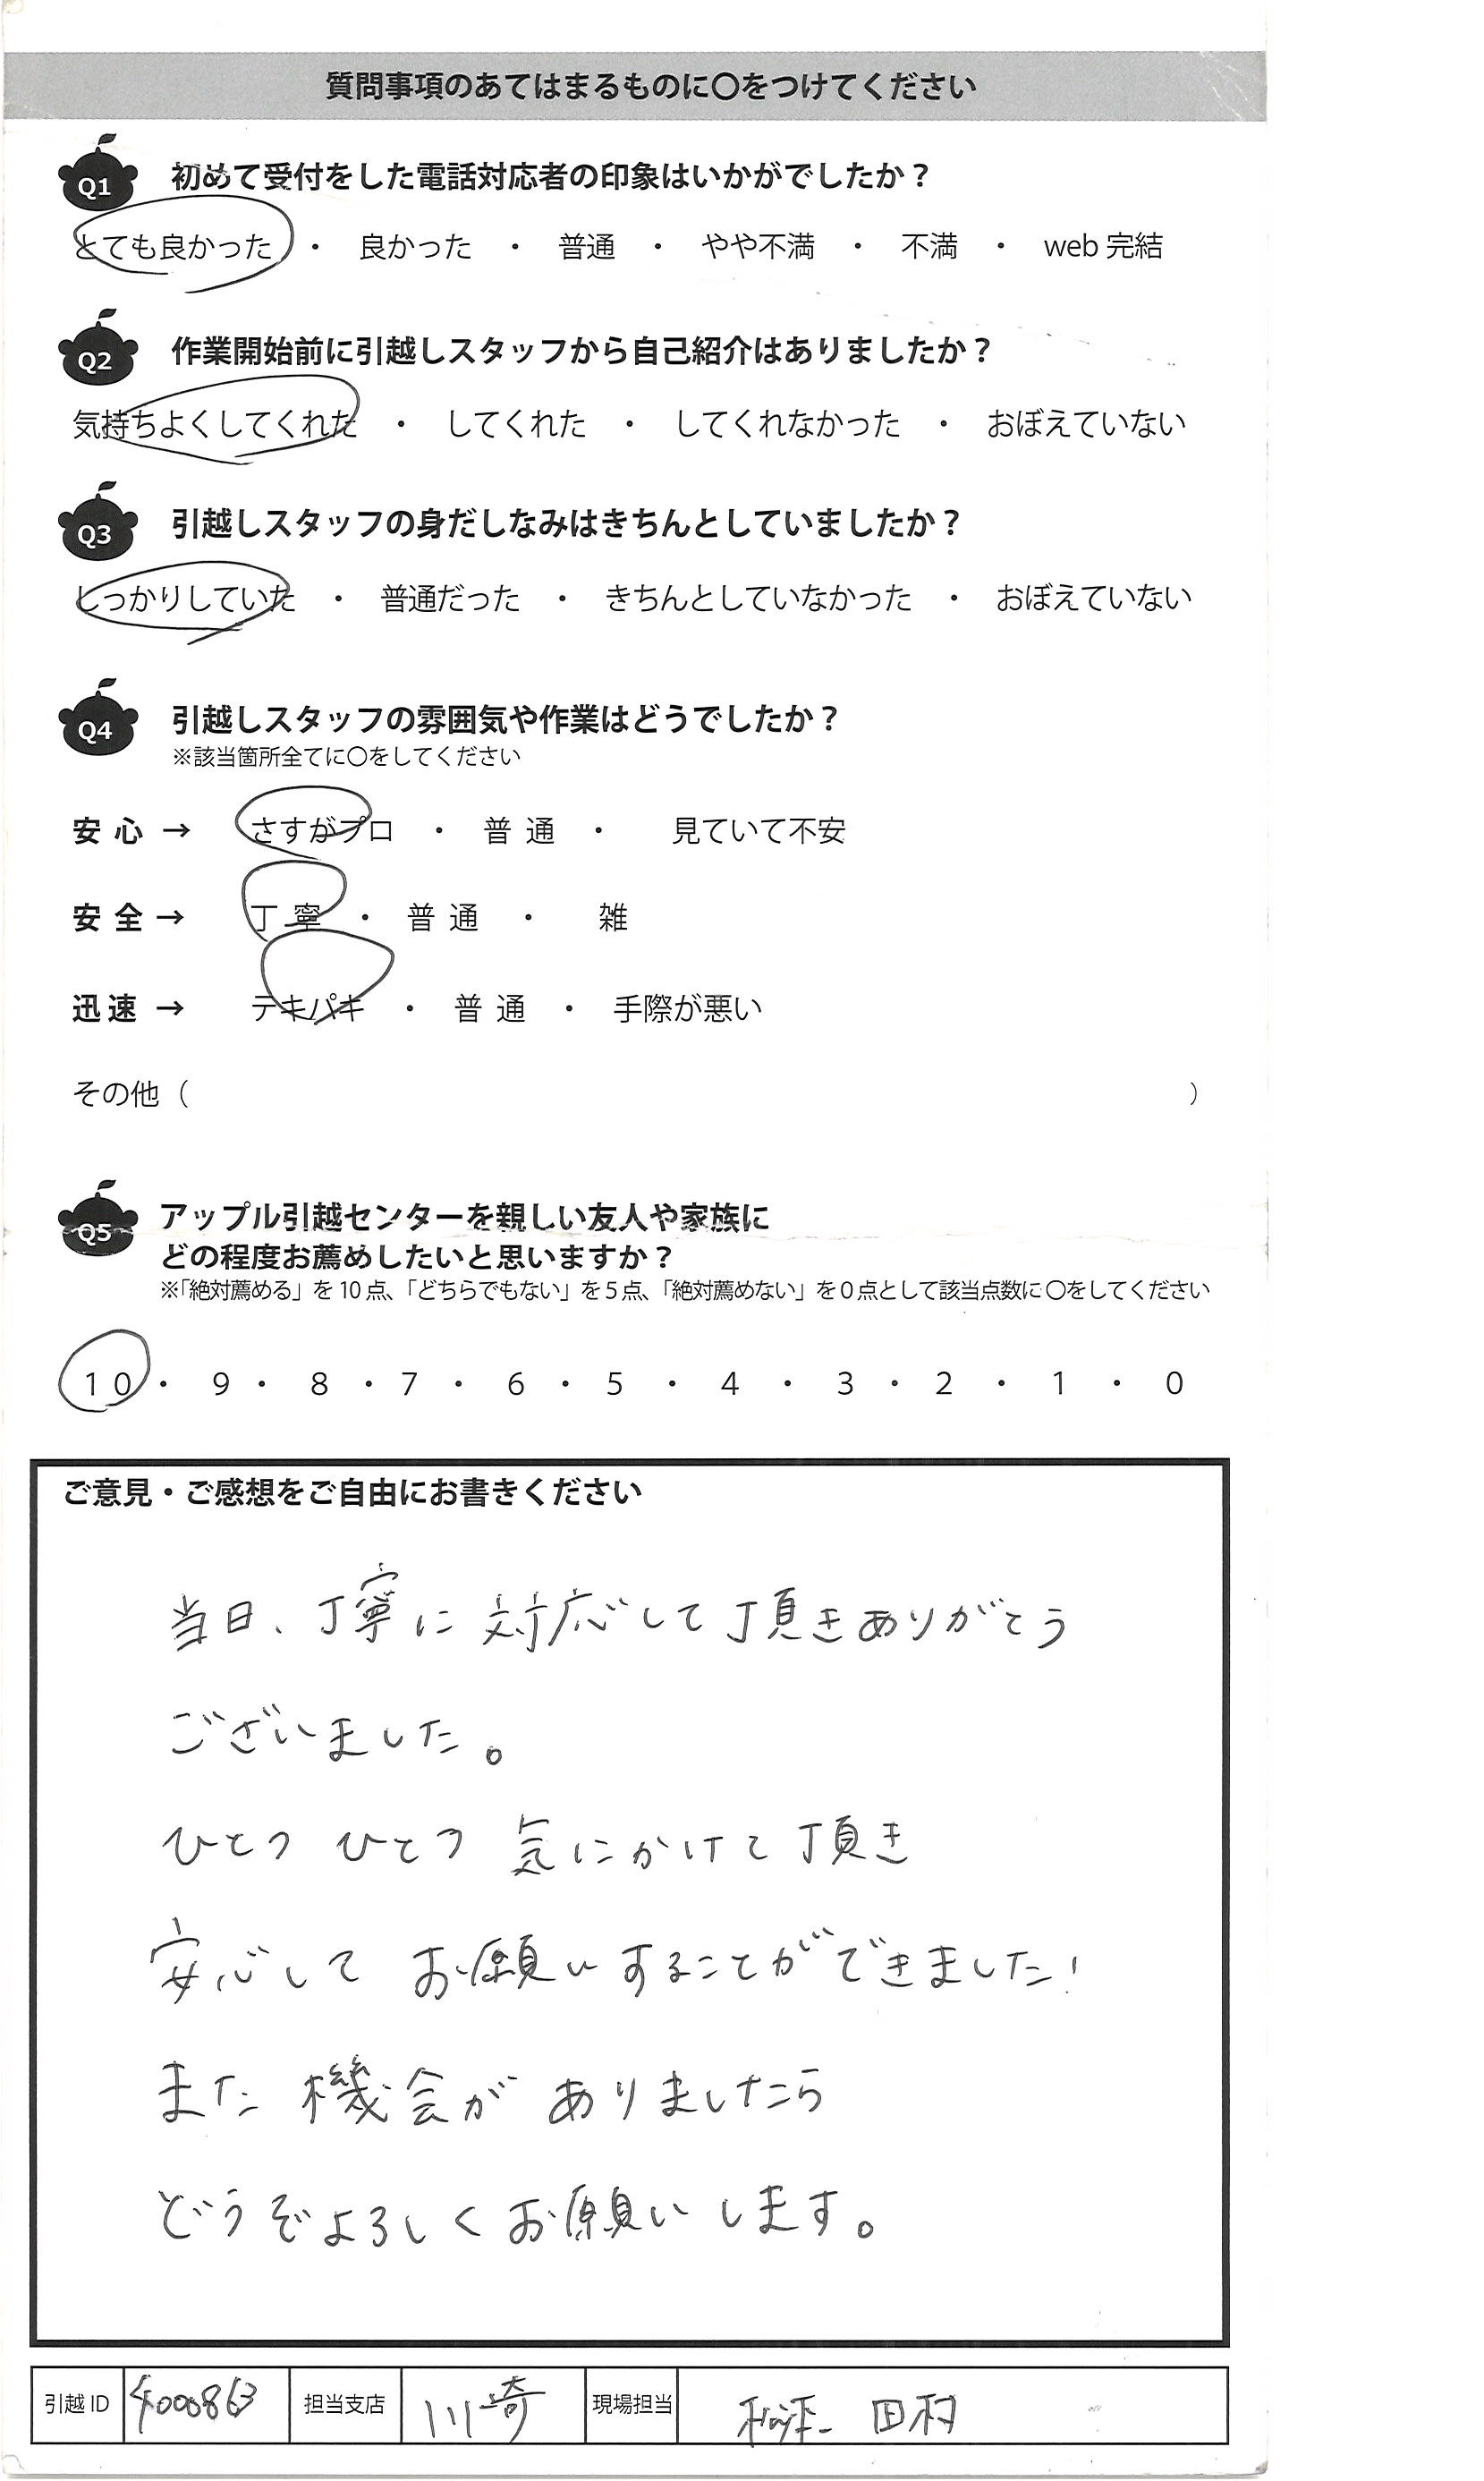 質問事項のあてはまるものに〇をつけてください
Q1 初めて受付をした電話対応者の印象はいかがでしたか？
とても良かった ・ 良かった ・ 普通 ・ やや不満 ・ 不満 ・ web 完結
Q2 作業開始前に引越しスタッフから自己紹介はありましたか？
気持ちよくしてくれた ・ してくれた ・ してくれなかった ・ おぼえていない
Q3 引越しスタッフの身だしなみはきちんとしていましたか？
しっかりしていた ・ 普通だった ・ きちんとしていなかった ・ おぼえていない
Q4 引越しスタッフの雰囲気や作業はどうでしたか？
※該当箇所全てに〇をしてください
安心 → さすがプロ ・ 普通 ・ 見ていて不安
安全 → 丁寧 ・ 普通 ・ 雑
迅速 → テキパキ ・ 普通 ・ 手際が悪い
その他（ ）
Q5 アップル引越センターを親しい友人や家族に
どの程度お薦めしたいと思いますか？
※「絶対薦める」を10点、「どちらでもない」を5点、「絶対薦めない」を0点として該当点数に〇をしてください
10 ・ 9 ・ 8 ・ 7 ・ 6 ・ 5 ・ 4 ・ 3 ・ 2 ・ 1 ・ 0
ご意見・ご感想をご自由にお書きください
当日、丁寧に対応して頂きありがとう
ございました。
ひとつひとつ気にかけて頂き
安心してお願いすることができました！
また機会がありましたら
どうぞよろしくお願いします。
引越ID 4000863 担当支店 川崎 現場担当 田村